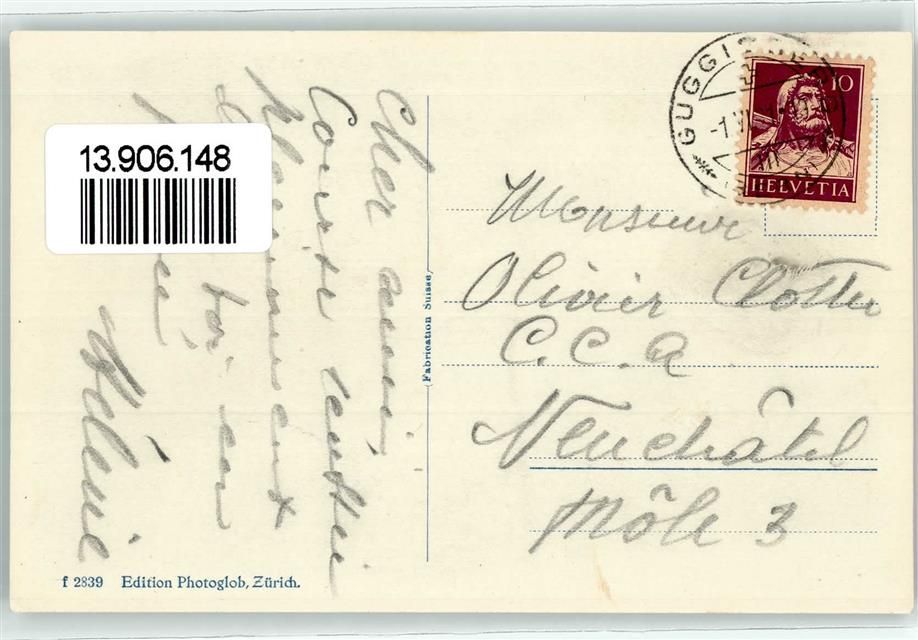 13.906.148
Cher ami
Courte lettre
Hélène
Fabrication Suisse
GUGGISBERG
10
HELVETIA
Monsieur
Olivier Clottu
C.C.A
Neuchâtel
Môle 3
f 2839 Edition Photoglob, Zürich.